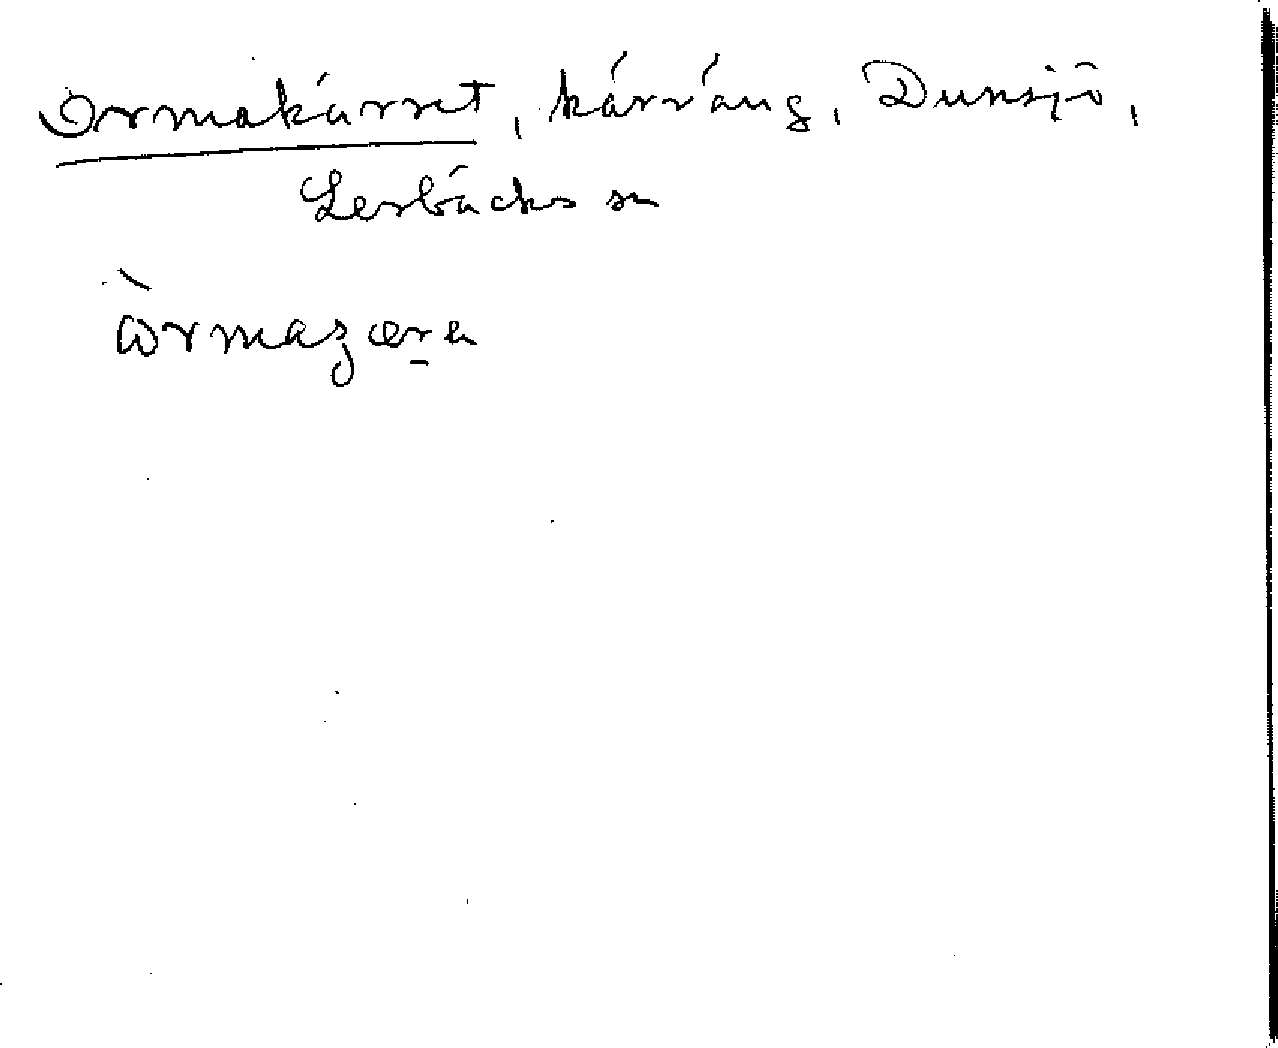 Ormakärret, kärräng, Dunsjö,
Lerbäcks sn